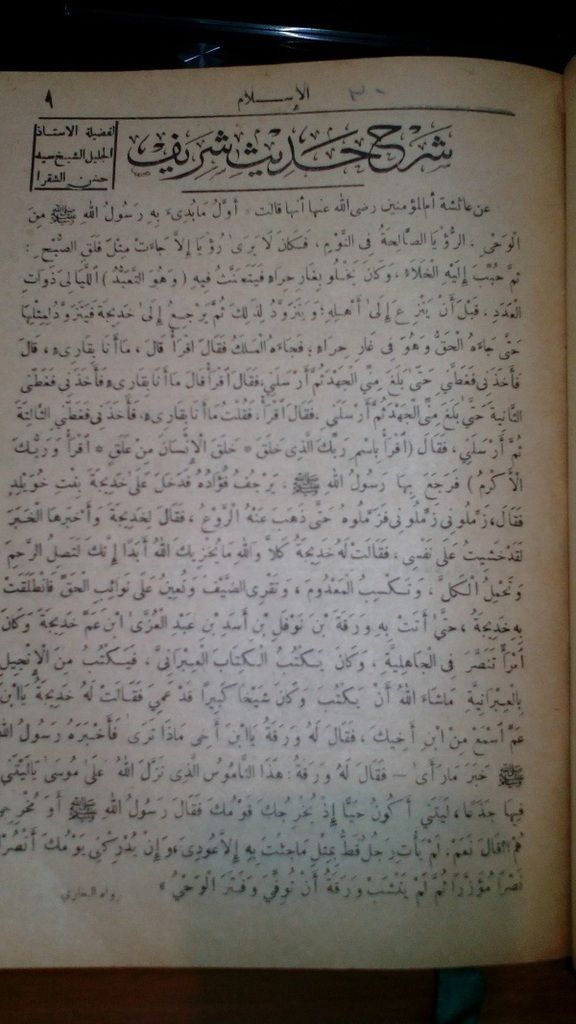 ٣٠
الإســـلام
٩
شرح حديث شريف
لفضيلة الاستاذ
الجليل الشيخ سيد
حسن الشقرا
عن عائشة أم المؤمنين رضى الله عنها أنها قالت « أوَّلُ مَابُدِىءَ بِهِ رَسُولُ اللهِ ﷺ مِنَ
الْوَحْىِ . الرُّؤْيَا الصَّالِحَةُ فِى النَّوْمِ ، فَكَانَ لَا يَرَىٰ رُؤْيَا إِلاَّ جَاءَتْ مِثْلَ فَلَقِ الصُّبْحِ :
ثُمَّ حُبِّبَ إِلَيْهِ الْخَلَاءُ ، وَكَانَ يَخْلُو بِغَارِ حِرَاءٍ فَيَتَحَنَّثُ فِيهِ ( وَهُوَ التَّعَبُّدُ ) اللَّيَالِىَ ذَوَاتِ
الْعَدَدِ . قَبْلَ أَنْ يَنْزِعَ إِلَىٰ أَهْلِهِ ؛ وَيَتَزَوَّدُ لِذَلِكَ ثُمَّ يَرْجِعُ إِلَىٰ خَدِيجَةَ فَيَتَزَوَّدُ لِمِثْلِهَا
حَتَّى جَاءَهُ الْحَقُّ وَهُوَ فِى غَارِ حِرَاءٍ ؛ فَجَاءَهُ الْمَلَكُ فَقَالَ اقْرَأْ قَالَ ، مَاأَنَا بِقَارِىءٍ ، قَالَ
فَأَخَذَنِى فَغَطَّنِي حَتَّى بَلَغَ مِنِّي الْجَهْدَ ثُمَّ أَرْسَلَنِي ، فَقَالَ اقْرَأْ قَالَ مَاأَنَا بِقَارِىءٍ فَأَخَذَنِى فَغَطَّنِى
الثَّانِيَةَ حَتَّى بَلَغَ مِنِّى الْجَهْدَ ثُمَّ أَرْسَلَنِي . فَقَالَ اقْرَأْ ، فَقُلْتُ مَاأَنَا بِقَارِىءٍ ، فَأَخَذَنِى فَغَطَّنِي الثَّالِثَةَ
ثُمَّ أَرْسَلَنِي ، فَقَالَ ( اقْرَأْ بِاسْمِ رَبِّكَ الَّذِى خَلَقَ * خَلَقَ الْإِنْسَانَ مِنْ عَلَقٍ * اقْرَأْ وَرَبُّكَ
الْأَكْرَمُ ) فَرَجَعَ بِهَا رَسُولُ اللهِ ﷺ . يَرْجُفُ فُؤَادُهُ فَدَخَلَ عَلَىٰ خَدِيجَةَ بِنْتِ خُوَيْلِدٍ
فَقَالَ ، زَمِّلُونِى زَمِّلُونِى فَزَمَّلُوهُ حَتَّى ذَهَبَ عَنْهُ الرَّوْعُ ، فَقَالَ لِخَدِيجَةَ وَأَخْبَرَهَا الْخَبَرَ
لَقَدْ خَشِيتُ عَلَى نَفْسِى ، فَقَالَتْ لَهُ خَدِيجَةُ كَلاَّ وَاللهِ مَايُخْزِيكَ اللهُ أَبَدًا إِنَّكَ لَتَصِلُ الرَّحِمَ
وَتَحْمِلُ الْكَلَّ ، وَتَكْسِبُ الْمَعْدُومَ ، وَتَقْرِى الضَّيْفَ وَتُعِينُ عَلَى نَوَائِبِ الْحَقِّ فَانْطَلَقَتْ
بِهِ خَدِيجَةُ ، حَتَّى أَتَتْ بِهِ وَرَقَةَ بْنَ نَوْفَلِ بْنِ أَسَدِ بْنِ عَبْدِ الْعُزَّى ابْنَ عَمِّ خَدِيجَةَ وَكَانَ
امْرَأً تَنَصَّرَ فِى الْجَاهِلِيَّةِ ، وَكَانَ يَكْتُبُ الْكِتَابَ الْعِبْرَانِىَّ ، فَيَكْتُبُ مِنَ الْإِنْجِيلِ
بِالْعِبْرَانِيَّةِ مَاشَاءَ اللهُ أَنْ يَكْتُبَ وَكَانَ شَيْخًا كَبِيرًا قَدْ عَمِيَ فَقَالَتْ لَهُ خَدِيجَةُ يَاابْنَ
عَمِّ اسْمَعْ مِنِ ابْنِ أَخِيكَ ، فَقَالَ لَهُ وَرَقَةُ يَاابْنَ أَخِى مَاذَا تَرَى فَأَخْبَرَهُ رَسُولُ اللهِ
ﷺ خَبَرَ مَارَأَىٰ — فَقَالَ لَهُ وَرَقَةُ : هَذَا النَّامُوسُ الَّذِى نَزَّلَ اللهُ عَلَىٰ مُوسَى يَالَيْتَنِى
فِيهَا جَذَعًا ، لَيْتَنِى أَكُونُ حَيًّا إِذْ يُخْرِجُكَ قَوْمُكَ فَقَالَ رَسُولُ اللهِ ﷺ أَوَ مُخْرِجِىَّ
هُمْ ؟ قَالَ نَعَمْ . لَمْ يَأْتِ رَجُلٌ قَطُّ بِمِثْلِ مَاجِئْتَ بِهِ إِلاَّ عُودِىَ ، وَإِنْ يُدْرِكْنِى يَوْمُكَ أَنْصُرْكَ
نَصْرًا مُؤَزَّرًا ثُمَّ لَمْ يَنْشَبْ وَرَقَةُ أَنْ تُوُفِّىَ وَفَتَرَ الْوَحْىُ » رواه البخارى